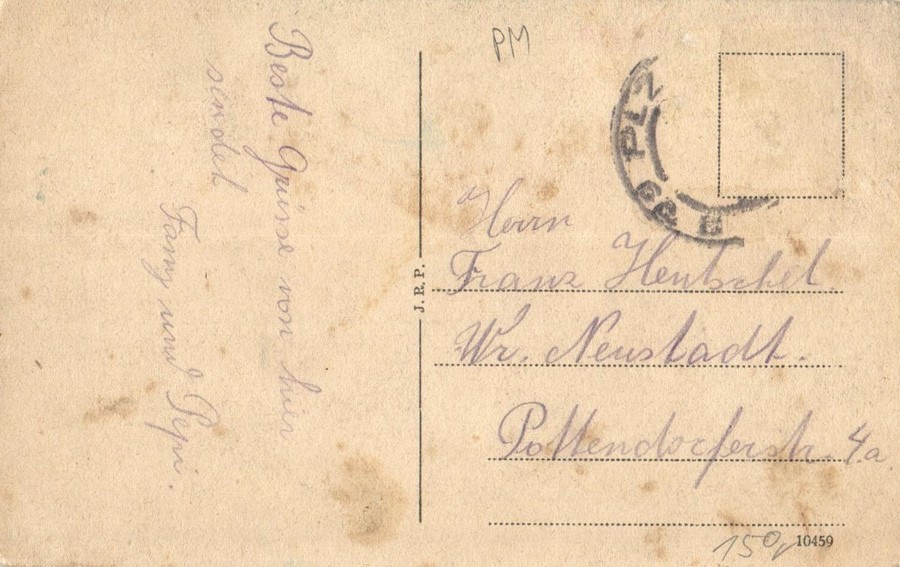 Beste Grüsse von hier
sendet
Fanny und Pepi.
PM
J. E. P.
Herrn
Franz Hentschel.
Wr. Neustadt.
Pottendorferstr. 4a
150,
10459